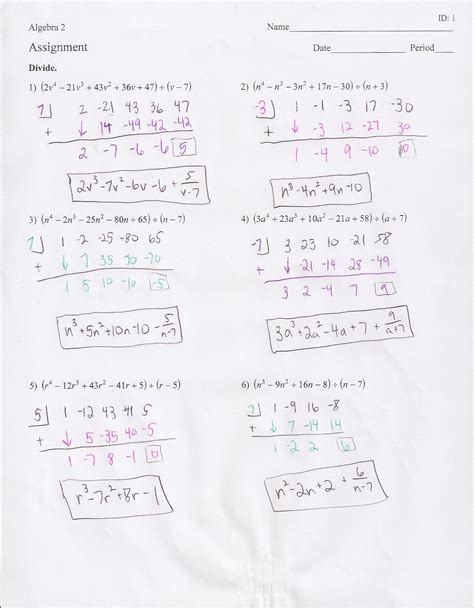 ID: 1
Algebra 2 Name
Assignment Date Period
Divide.
1) (2v⁴ − 21v³ + 43v² + 36v + 47) ÷ (v − 7)
7 2 -21 43 36 47
+ ↓ 14 -49 -42 -42
2 -7 -6 -6 5
2v³-7v²-6v-6+5/v-7
2) (n⁴ − n³ − 3n² + 17n − 30) ÷ (n + 3)
-3 1 -1 -3 17 -30
+ ↓ -3 12 -27 30
1 -4 9 -10 0
n³-4n²+9n-10
3) (n⁴ − 2n³ − 25n² − 80n + 65) ÷ (n − 7)
7 1 -2 -25 -80 65
+ ↓ 7 35 70 -70
1 5 10 -10 -5
n³+5n²+10n-10-5/n-7
4) (3a⁴ + 23a³ + 10a² − 21a + 58) ÷ (a + 7)
-7 3 23 10 -21 58
+ ↓ -21 -14 28 -49
3 2 -4 7 9
3a³+2a²-4a+7+9/a+7
5) (r⁴ − 12r³ + 43r² − 41r + 5) ÷ (r − 5)
5 1 -12 43 -41 5
+ ↓ 5 -35 40 -5
1 -7 8 -1 0
r³-7r²+8r-1
6) (n³ − 9n² + 16n − 8) ÷ (n − 7)
7 1 -9 16 -8
+ ↓ 7 -14 14
1 -2 2 6
n²-2n+2+6/n-7